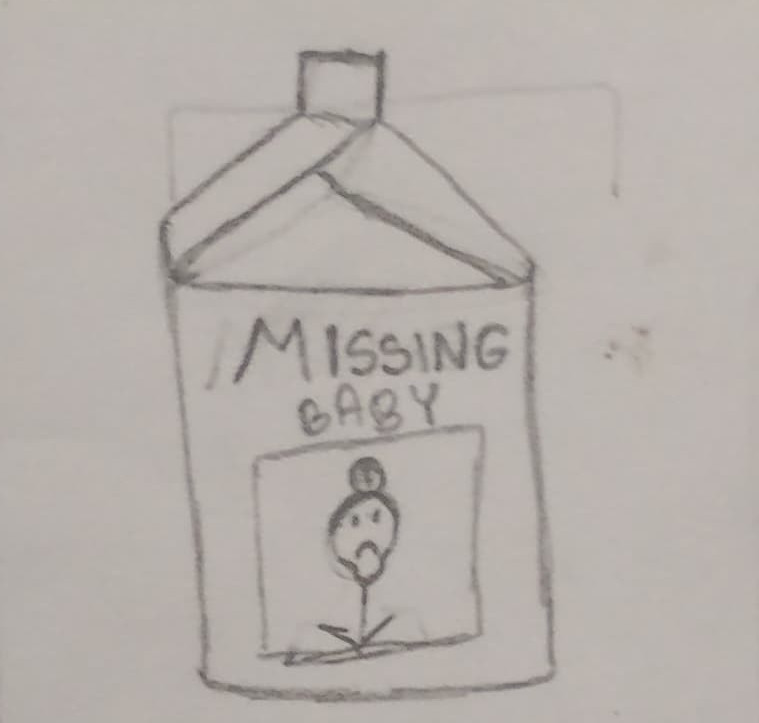 MISSING
BABY